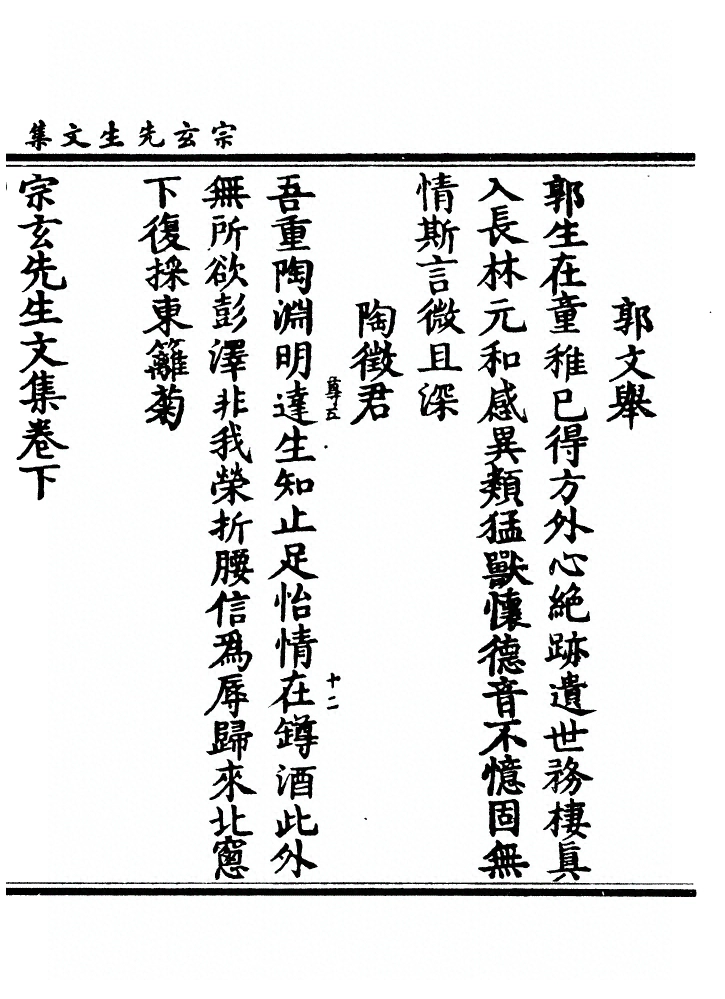 宗玄先生文集
郭文舉
郭生在童稚已得方外心絶跡遺世務棲眞
入長林元和感異類猛獸懷德音不憶固無
情斯言微且深
陶徵君
吾重陶淵明達生知止足怡情在罇酒此外
無所欲彭澤非我榮折腰信爲辱歸來北窻
下復採東籬菊
宗玄先生文集卷下
尊五
十二